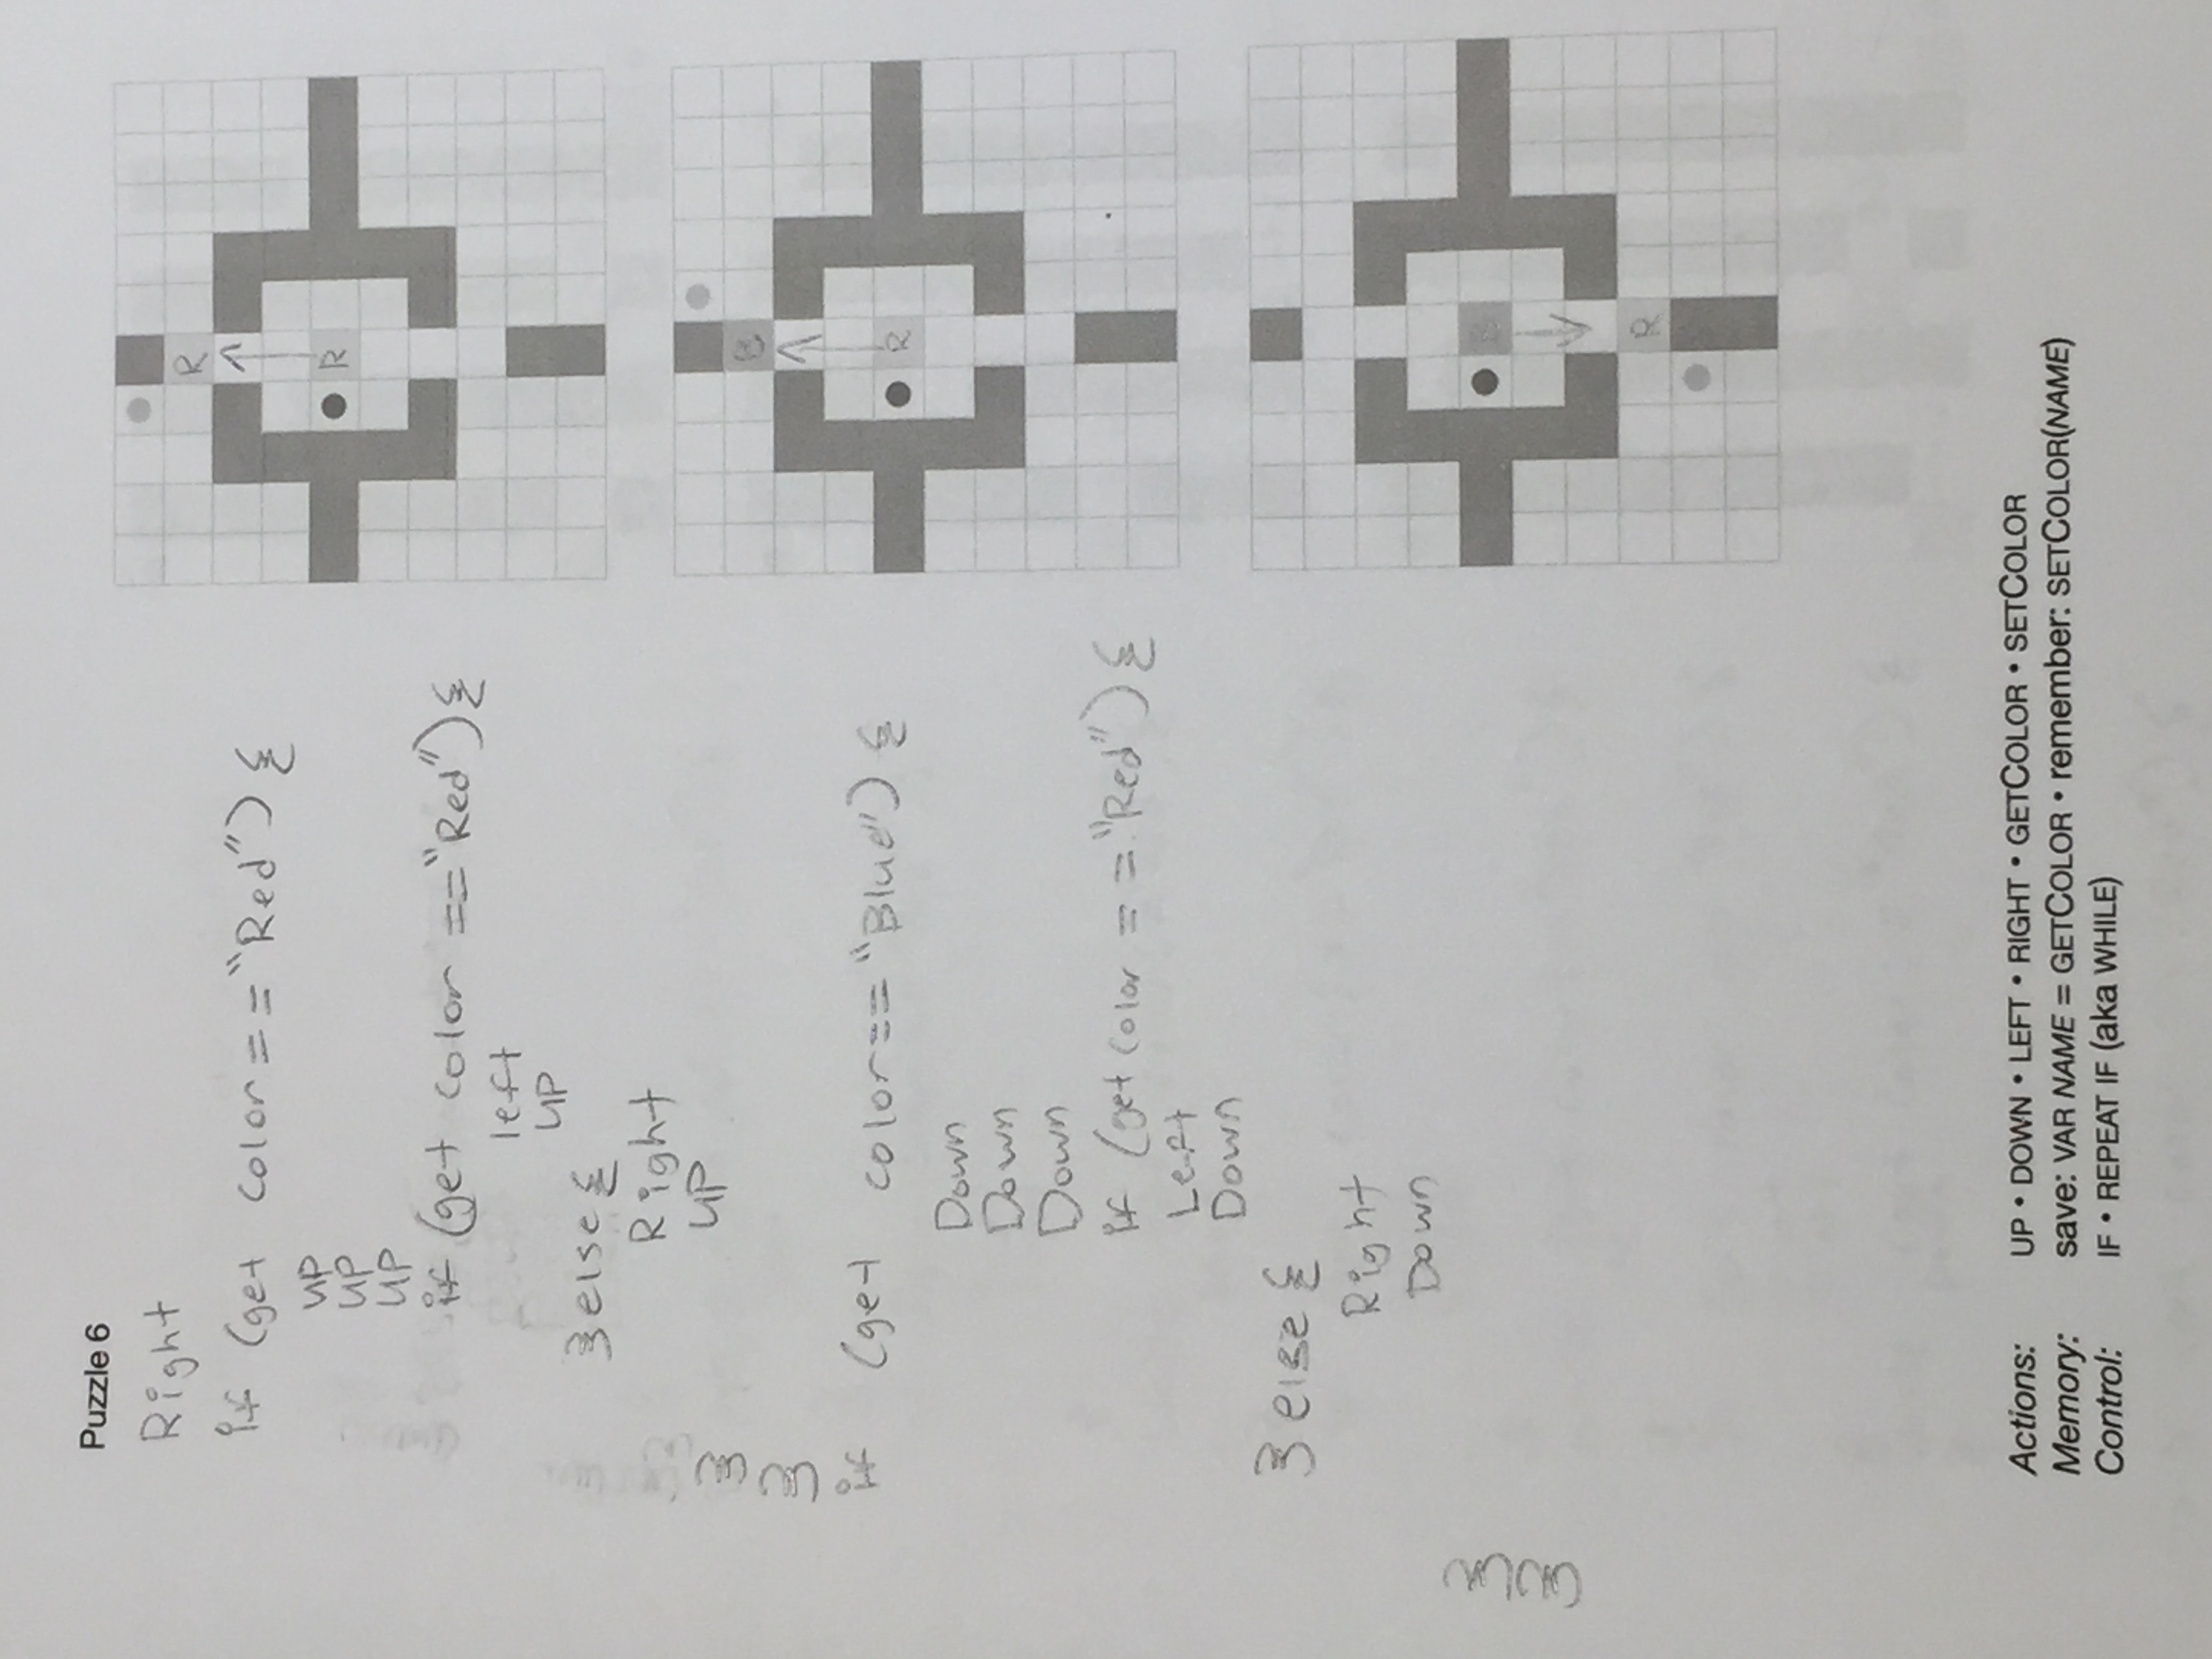 Puzzle 6
Right
if (get color == "Red") {
UP
UP
UP
if (get color == "Red") {
left
UP
} else {
Right
UP
if (get color == "Blue") {
Down
Down
Down
if (get color == "Red") {
Left
Down
} else {
Right
Down
R
R
B
R
R
Actions: UP • DOWN • LEFT • RIGHT • GETCOLOR • SETCOLOR
Memory: save: VAR NAME = GETCOLOR • remember: SETCOLOR(NAME)
Control: IF • REPEAT IF (aka WHILE)